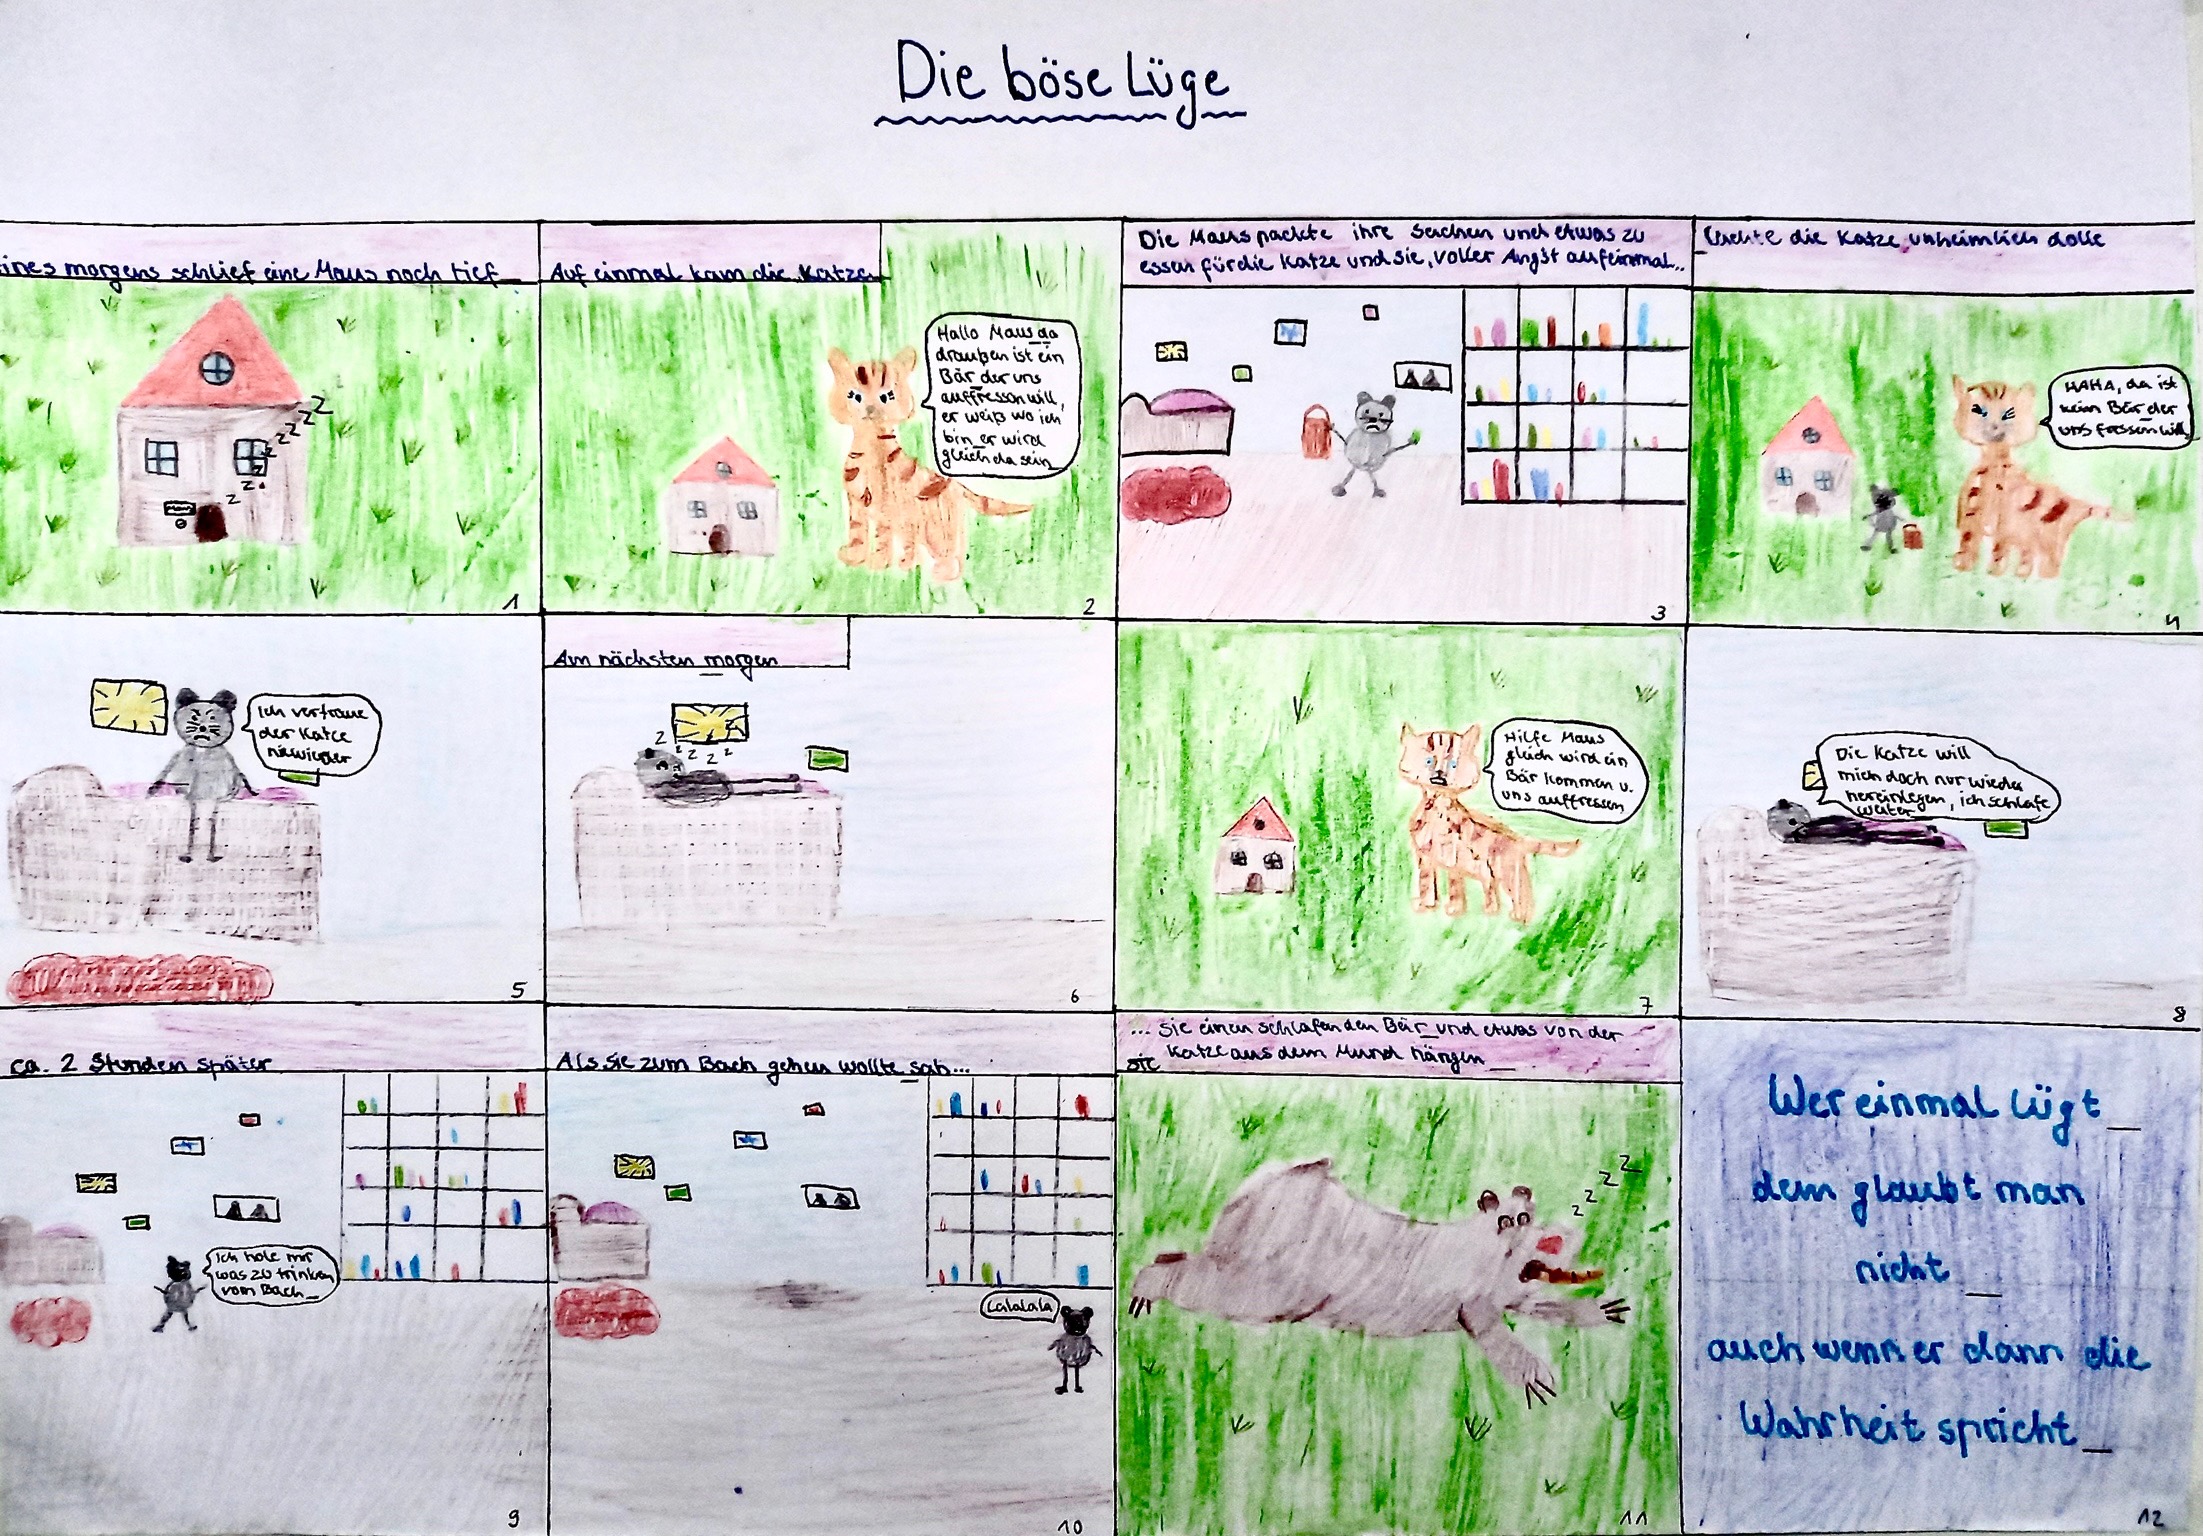 Die böse Lüge
ines morgens schlief eine Maus noch tief
z z z z z z z z
Maus
1
Auf einmal kam die Katze
Hallo Maus da
draußen ist ein
Bär der uns
auffressen will,
er weiß wo ich
bin er wird
gleich da sein
2
Die Maus packte ihre Sachen und etwas zu
essen für die Katze und sie, voller Angst aufeinmal...
3
lachte die Katze unheimlich dolle
HAHA, da ist
kein Bär der
uns fressen will
4
Ich vertraue
der Katze
niewieder
5
Am nächsten morgen
z z z z z z
6
Hilfe Maus
gleich wird ein
Bär kommen u.
uns auffressen
7
Die Katze will
mich doch nur wieder
hereinlegen, ich schlafe
weiter
8
ca. 2 Stunden später
Ich hole mir
was zu trinken
vom Bach
9
Als sie zum Bach gehen wollte sah...
Lalalala
10
... sie einen schlafenden Bär und etwas von der
sie Katze aus dem Mund hängen
z z z z
11
Wer einmal lügt
dem glaubt man
nicht
auch wenn er dann die
Wahrheit spricht
12